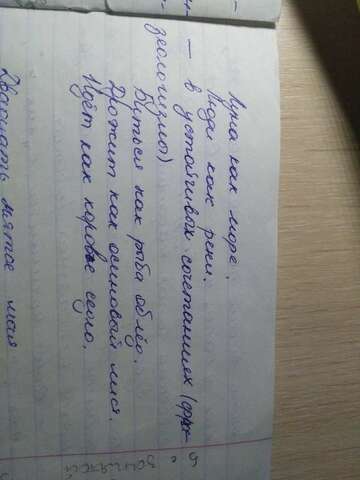 Луна как море.
Люди как реки.
— в устойчивых сочетаниях (фра-
зеологизмы)
Биться как рыба об лёд.
Дрожит как осиновый лист.
Идёт как корове седло.
Двадцать пятое мая